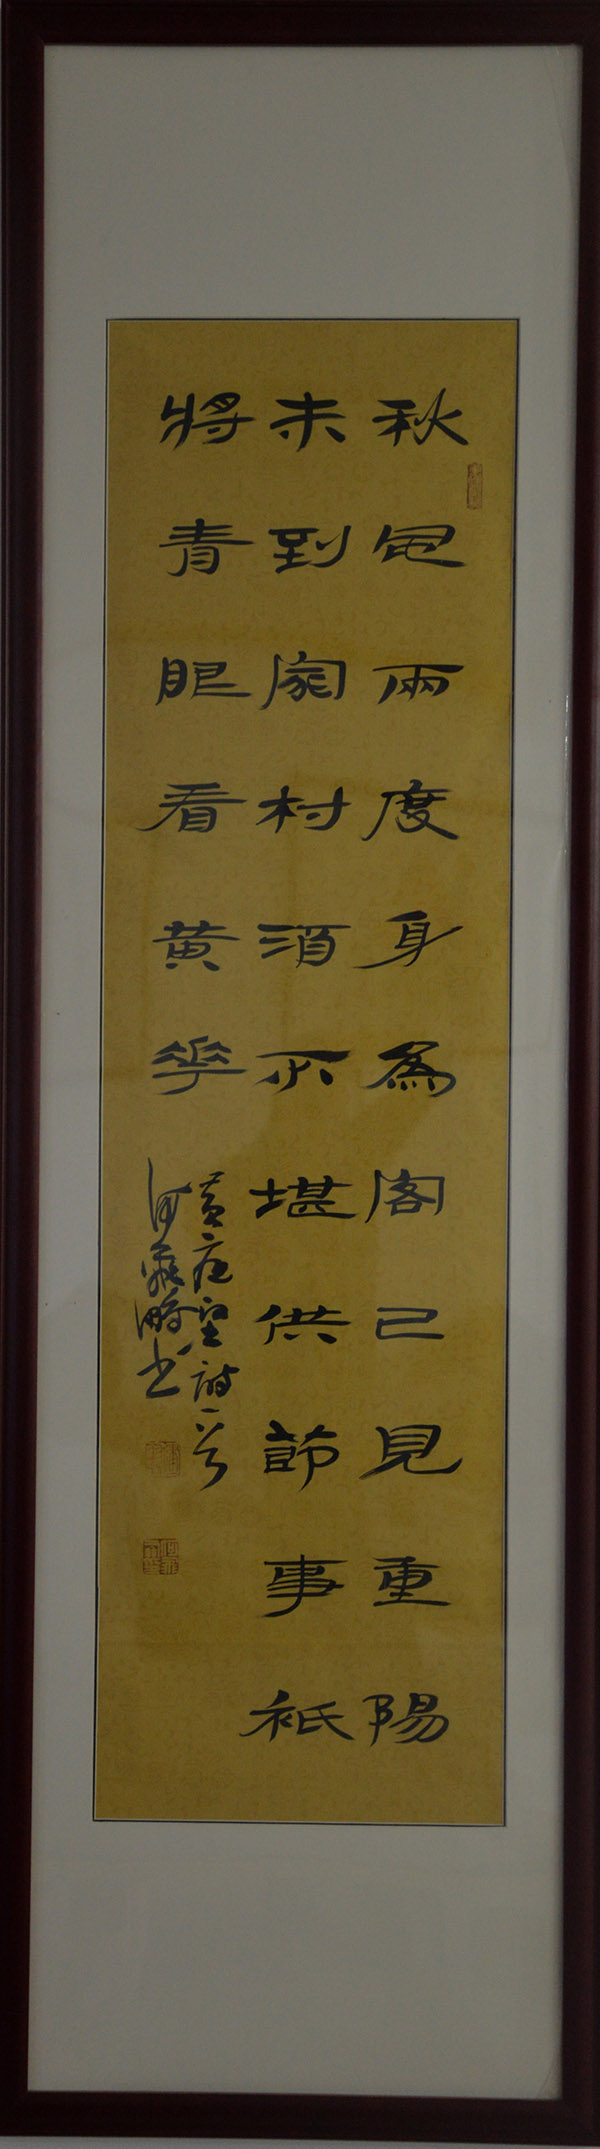 秋風兩度身為客已見重陽
未到家村酒不堪供節事祇
將青眼看黃華
黃庭堅詩一首
何 書